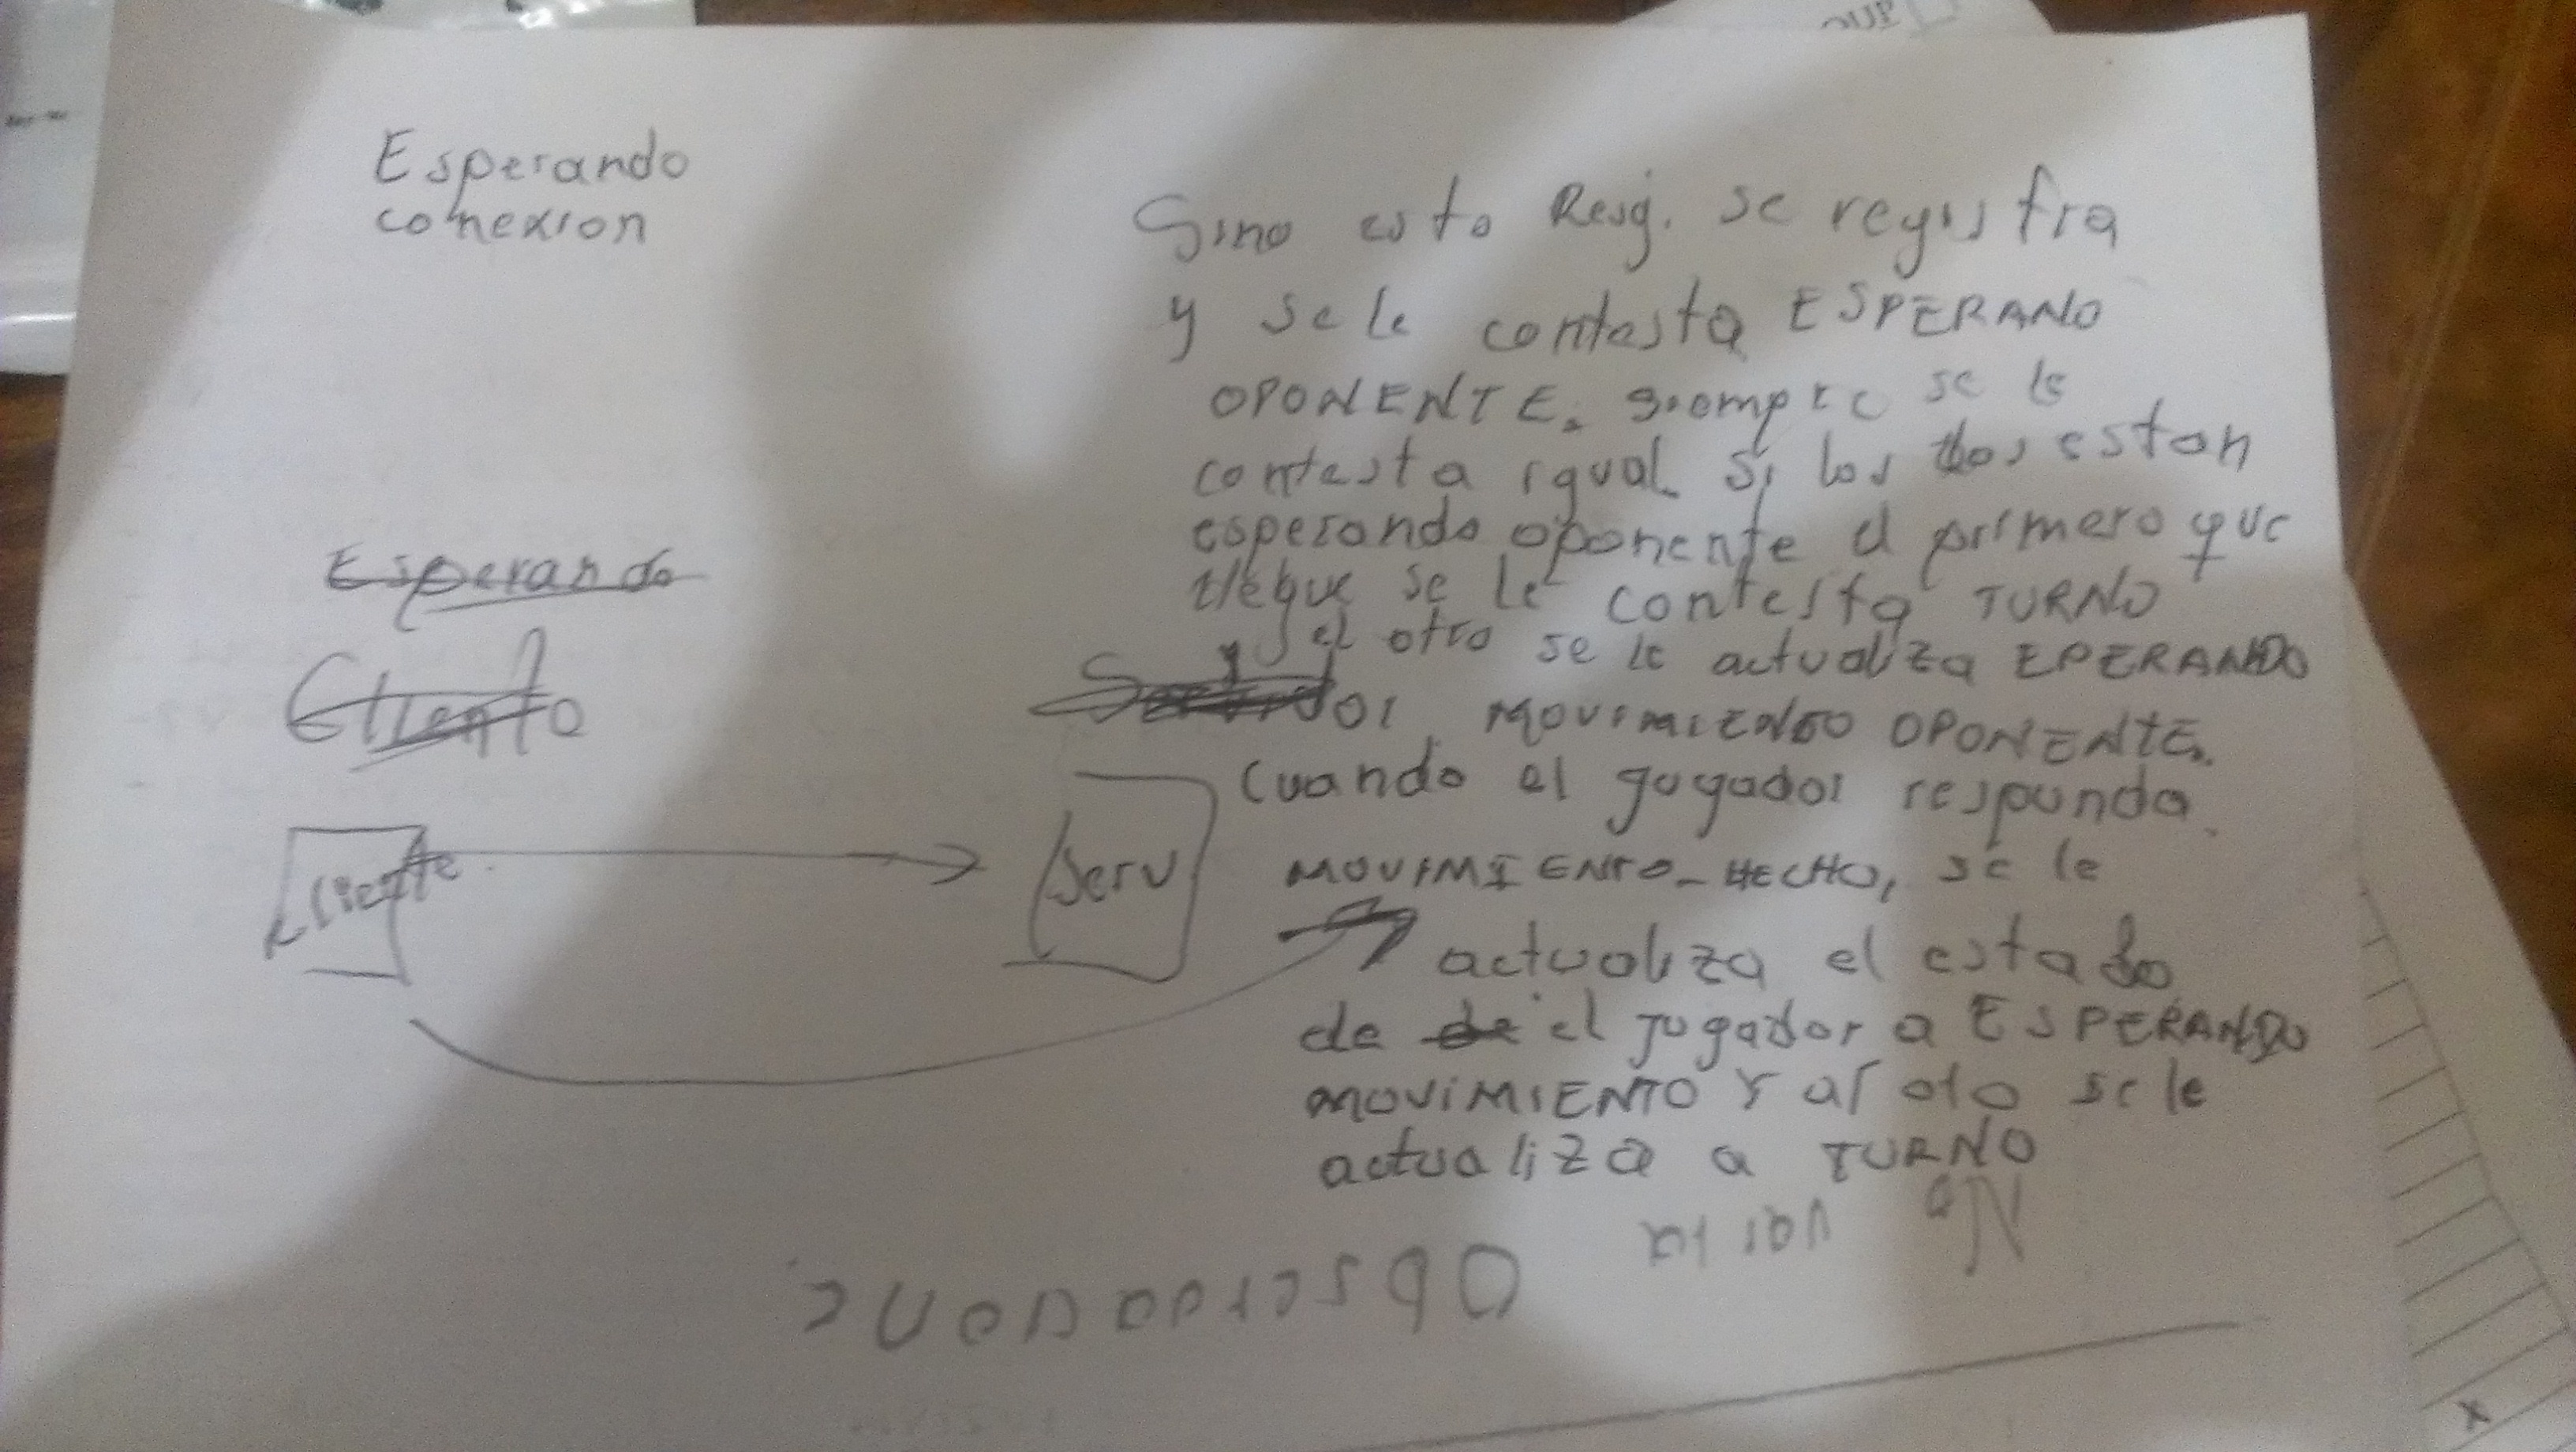 Esperando
conexion
Sino esta Resg. se registra
y se le contesta ESPERANO
OPONENTE. siempre se le
contesta igual. Si los dos estan
esperando oponente el primero que
llegue se le contesta TURNO
y el otro se le actualiza EPERANDO
MOVIMIENTO OPONENTE.
Cuando el jugador responda
MOVIMIENTO_HECHO, se le
actualiza el estado
de el jugador a ESPERANDO
MOVIMIENTO Y al oto se le
actualiza a TURNO
Esperando
Cliente
Cliente
Serv
No
x